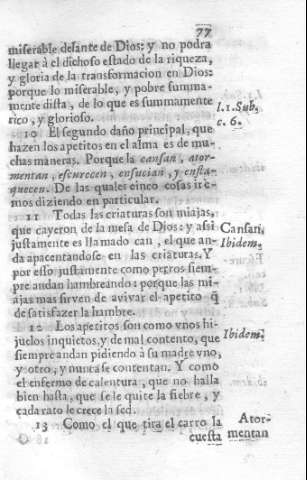 77
miserable delante de Dios: y no podra
llegar à el dichoso estado de la riqueza,
y gloria de la transformacion en Dios:
porque lo miserable, y pobre summa-
mente dista, de lo que es summamente
rico, y glorioso.
l. 1. Sub.
c. 6.
10 El segundo daño principal, que
hazen los apetitos en el alma es de mu-
chas maneras. Porque la cansan, ator-
mentan, escurecen, ensucian, y enfla-
quecen. De las quales cinco cosas ire-
mos diziendo en particular.
11 Todas las criaturas son miajas,
que cayeron de la mesa de Dios: y assi
justamente es llamado can, el que an-
da apacentandose en las criaturas. Y
por esso justamente como perros siem-
pre andan hambreando: porque las mi-
ajas mas sirven de avivar el apetito q̃
de satisfazer la hambre.
Cansan.
Ibidem.
12 Los apetitos son como vnos hi-
juelos inquietos, y de mal contento, que
siempre andan pidiendo à su madre vno,
y otro, y nunca se contentan. Y como
el enfermo de calentura, que no halla
bien hasta, que se le quite la fiebre, y
cada rato le crece la sed.
Ibidem.
13 Como el que tira el carro la
cuesta
Ator-
mentan